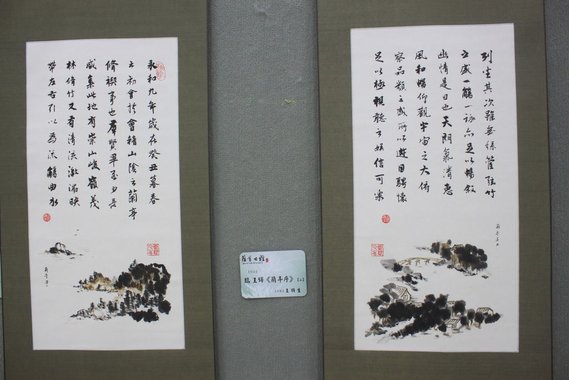 永和九年歲在癸丑暮春
之初會於會稽山陰之蘭亭
脩禊事也羣賢畢至少長
咸集此地有崇山峻嶺茂
林脩竹又有清流激湍映
帶左右引以為流觴曲水
列坐其次雖無絲管弦竹
之盛一觴一詠亦足以暢敘
幽情是日也天朗氣清惠
風和暢仰觀宇宙之大俯
察品類之盛所以遊目騁懷
足以極視聽之娛信可樂
《蘭亭序》